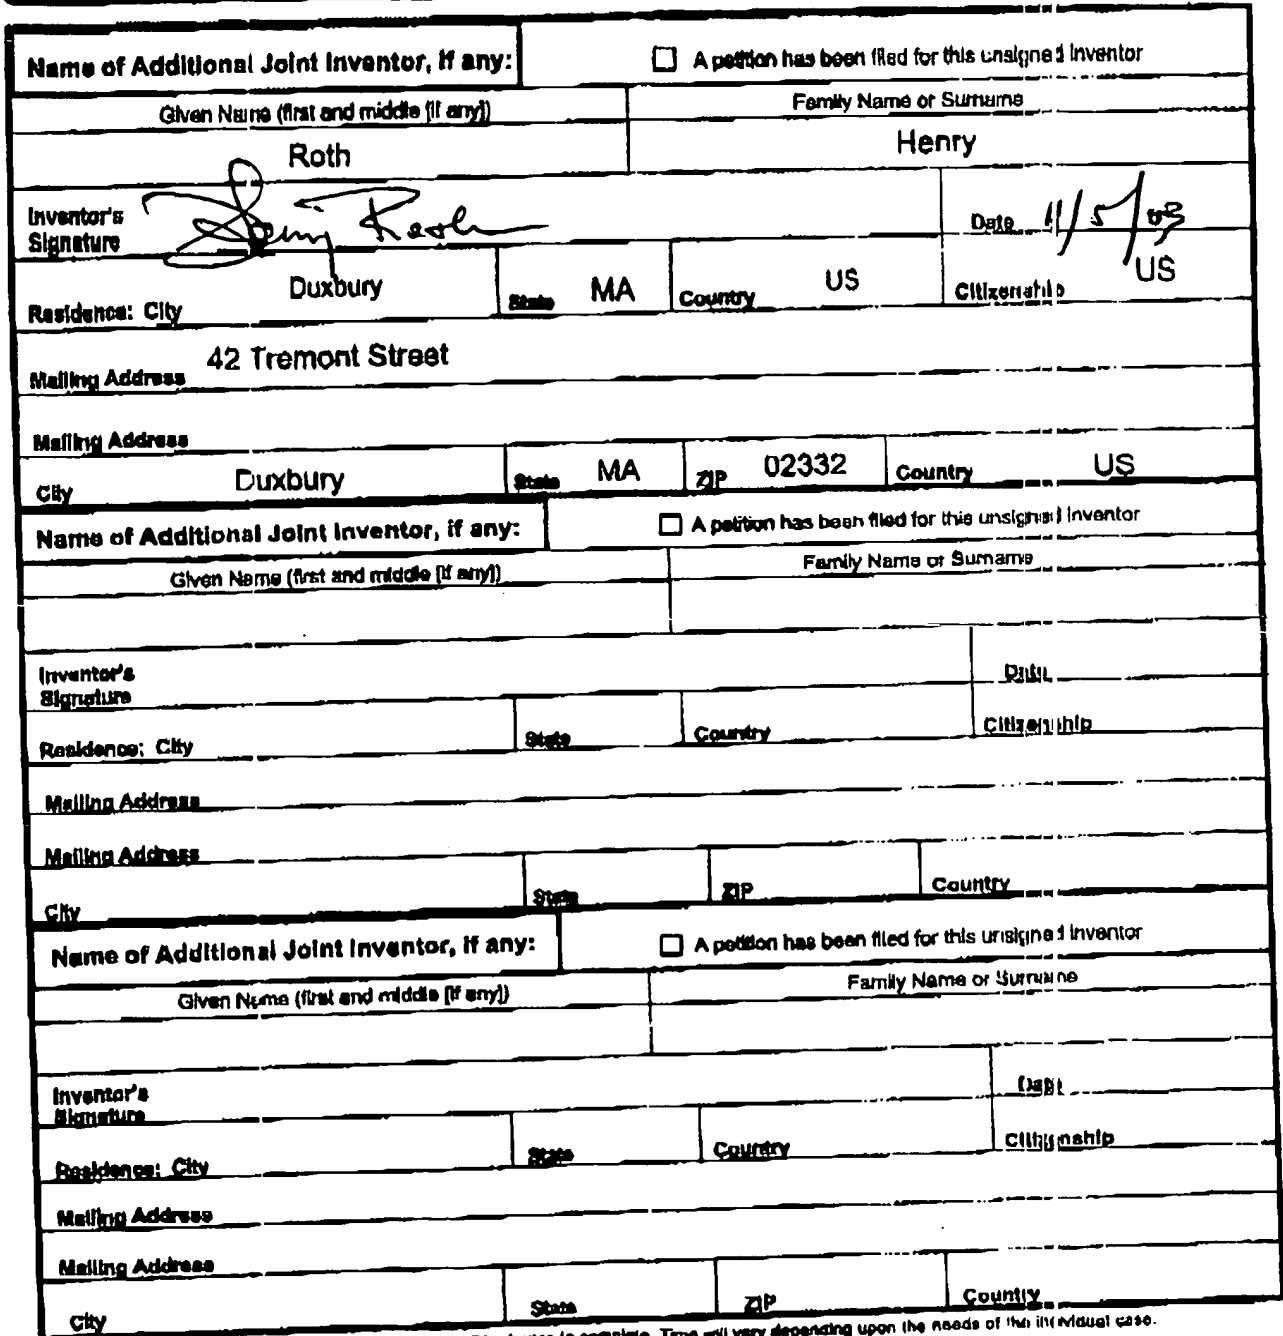 Name of Additional Joint Inventor, if any: ☐ A petition has been filed for this unsigned Inventor
Given Name (first and middle [if any]) Family Name or Surname
Roth Henry
Inventor's Signature Henry Roth Date 11/5/03
Residence: City Duxbury State MA Country US Citizenship US
Mailing Address 42 Tremont Street
Mailing Address
City Duxbury State MA ZIP 02332 Country US
Name of Additional Joint Inventor, if any: ☐ A petition has been filed for this unsigned Inventor
Given Name (first and middle [if any]) Family Name or Surname
Inventor's Signature Date
Residence: City State Country Citizenship
Mailing Address
Mailing Address
City State ZIP Country
Name of Additional Joint Inventor, if any: ☐ A petition has been filed for this unsigned Inventor
Given Name (first and middle [if any]) Family Name or Surname
Inventor's Signature Date
Residence: City State Country Citizenship
Mailing Address
Mailing Address
City State ZIP Country
complete. Time will vary depending upon the needs of the individual case.